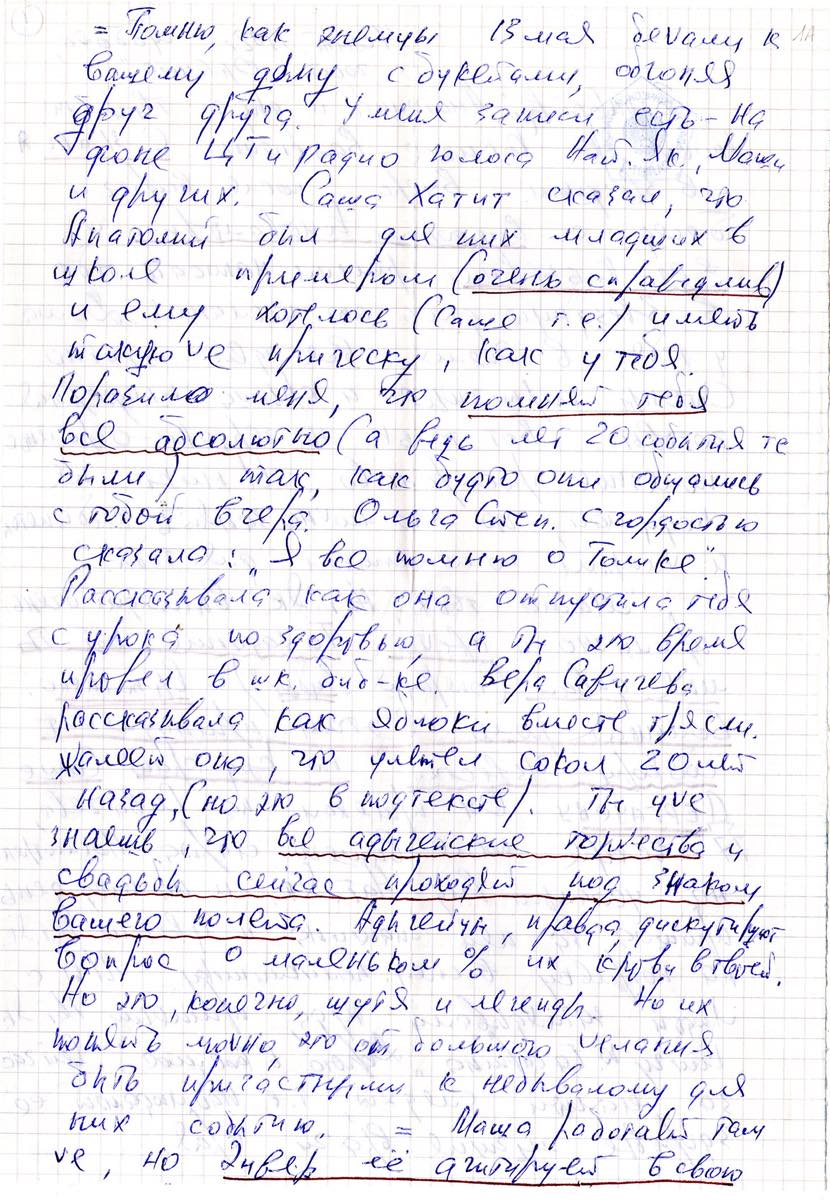 = Помню, как земцы 13 мая бежали к
вашему дому с букетами, обгоняя
друг друга. У меня записи есть - на
фоне ЦТ и радио голоса Нат. Як., Маши
и других. Саша Хатит сказал, что
Анатолий был для них младших в
школе примером (очень справедлив)
и ему хотелось (Саше т.е.) иметь
такую же прическу, как у тебя.
Поразило меня, что помнят тебя
все абсолютно (а ведь лет 20 события те
были) так, как будто они общались
с тобой вчера. Ольга Степ. с гордостью
сказала: "Я все помню о Толике".
Рассказывала как она отпустила тебя
с урока по здоровью, а ты это время
провел в шк. биб-ке. Вера Савичева
рассказывала как яблоки вместе трясли.
Жалеет она, что улетел сокол 20 лет
назад, (но это в подтексте). Ты уже
знаешь, что все адыгейские торжества и
свадьбы сейчас проходят под знаком
вашего полета. Адыгейцы, правда, дискутируют
вопрос о маленьком % их крови в твоей.
Но это, конечно, шутя и легенды. Но их
понять можно, это от большого желания
быть причастными к небывалому для
них событию. = Маша работает там
же, но её агитирует в свою